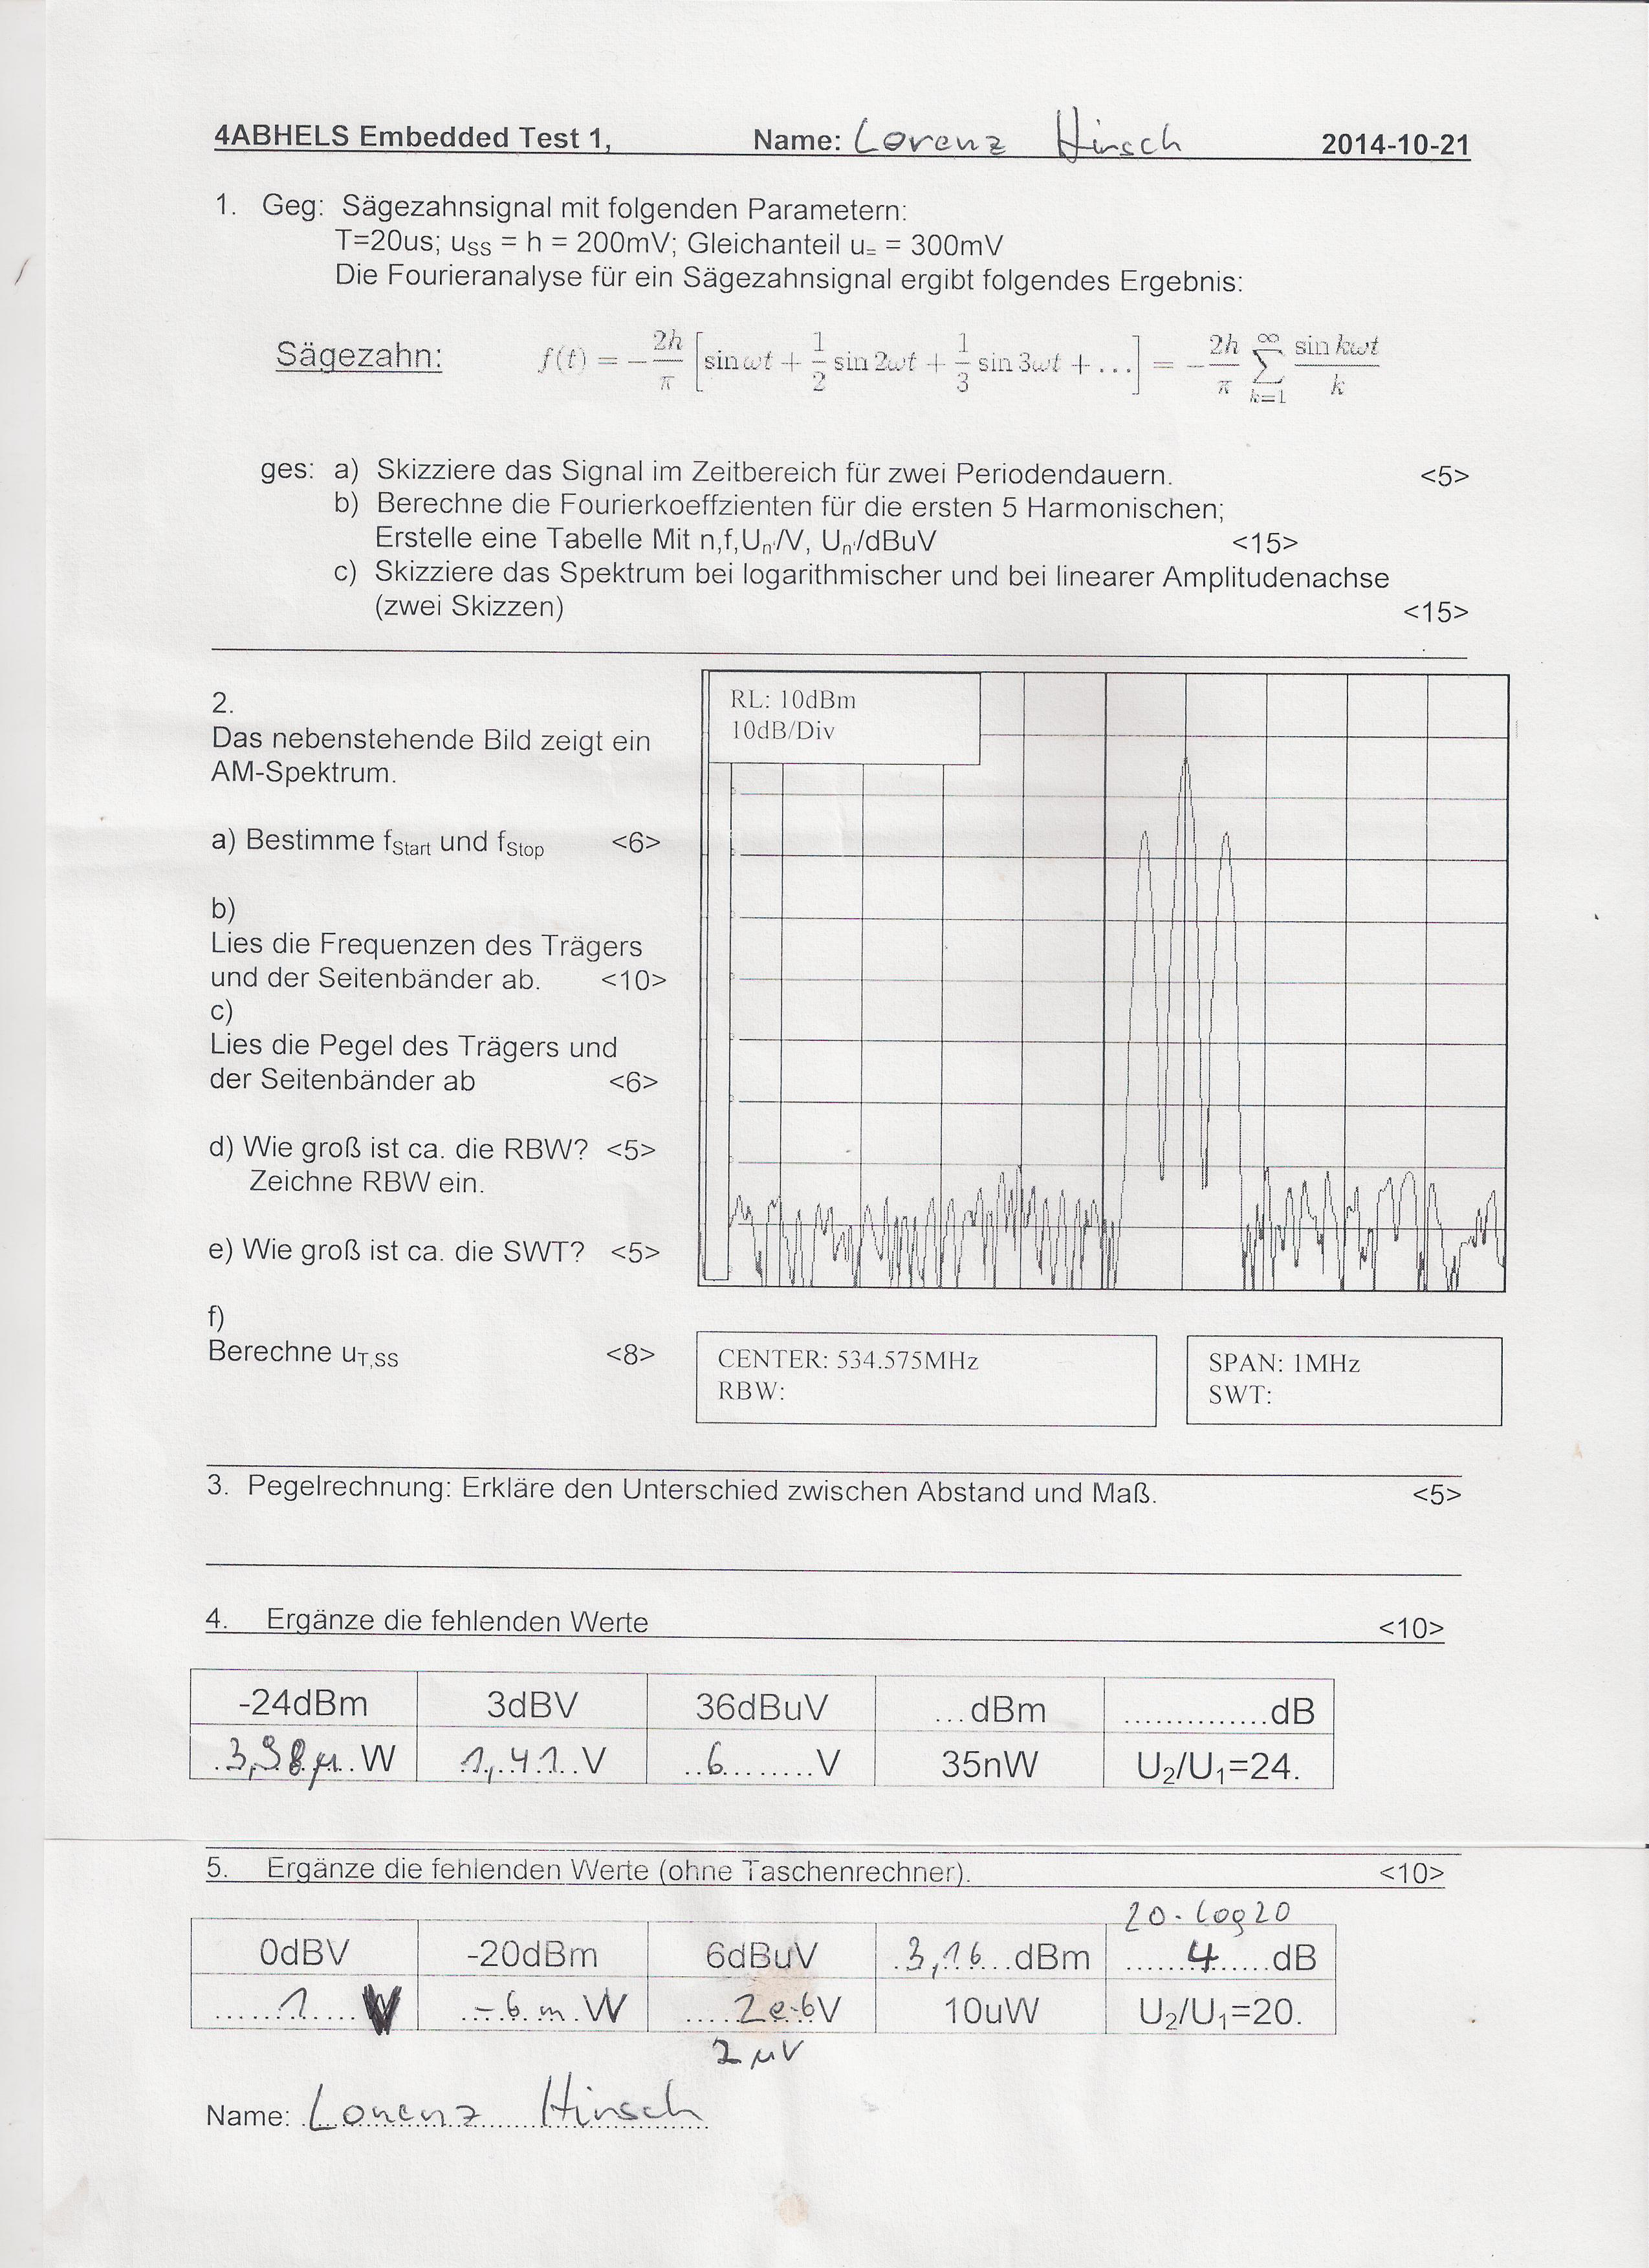 4ABHELS Embedded Test 1, Name: Lorenz Hirsch 2014-10-21
1. Geg: Sägezahnsignal mit folgenden Parametern:
T=20us; uSS = h = 200mV; Gleichanteil u= = 300mV
Die Fourieranalyse für ein Sägezahnsignal ergibt folgendes Ergebnis:
Sägezahn: f(t) = −2h/π [sin ωt + 1/2 sin 2ωt + 1/3 sin 3ωt + …] = −2h/π ∑k=1∞ sin kωt/k
ges: a) Skizziere das Signal im Zeitbereich für zwei Periodendauern. <5>
b) Berechne die Fourierkoeffzienten für die ersten 5 Harmonischen;
Erstelle eine Tabelle Mit n,f,Un/V, Un/dBuV <15>
c) Skizziere das Spektrum bei logarithmischer und bei linearer Amplitudenachse
(zwei Skizzen) <15>
2.
Das nebenstehende Bild zeigt ein
AM-Spektrum.
a) Bestimme fStart und fStop <6>
b)
Lies die Frequenzen des Trägers
und der Seitenbänder ab. <10>
c)
Lies die Pegel des Trägers und
der Seitenbänder ab <6>
d) Wie groß ist ca. die RBW? <5>
Zeichne RBW ein.
e) Wie groß ist ca. die SWT? <5>
f)
Berechne uT,SS <8>
RL: 10dBm
10dB/Div
CENTER: 534.575MHz
RBW:
SPAN: 1MHz
SWT:
3. Pegelrechnung: Erkläre den Unterschied zwischen Abstand und Maß. <5>
4. Ergänze die fehlenden Werte <10>
-24dBm 3dBV 36dBuV ...dBm ..............dB
3,98µ W 1,41 V 6 V 35nW U2/U1=24.
5. Ergänze die fehlenden Werte (ohne Taschenrechner). <10>
20 · log20
0dBV -20dBm 6dBuV 3,16 dBm 4 dB
1 V -6 m W 2e-6V 10uW U2/U1=20.
2 µV
Name: Lorenz Hirsch